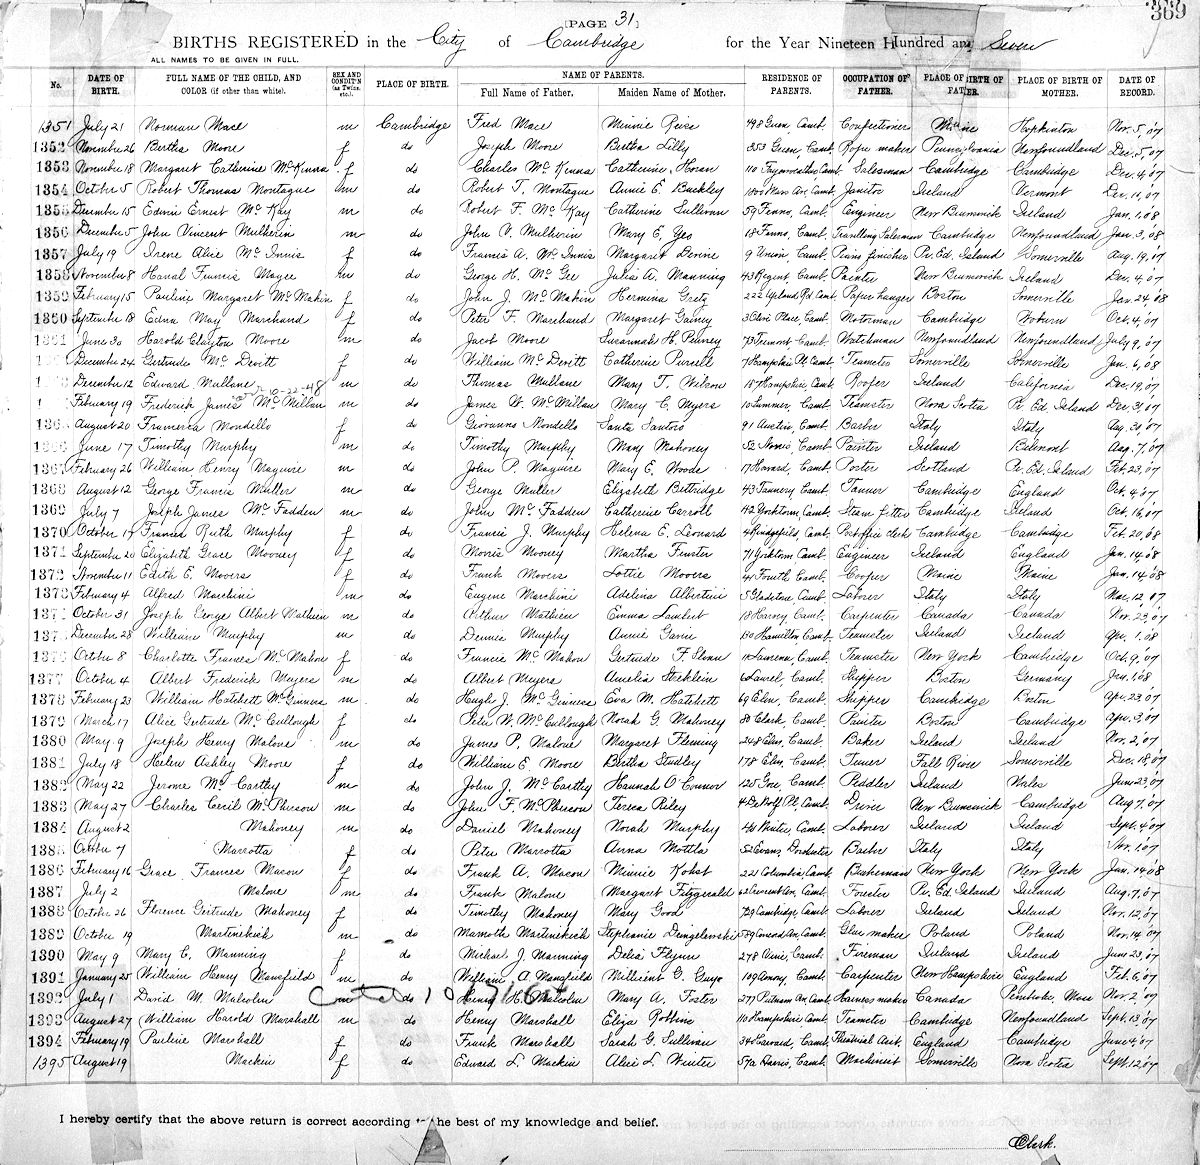 [PAGE 31]
369
BIRTHS REGISTERED in the City of Cambridge for the Year Nineteen Hundred and Seven
ALL NAMES TO BE GIVEN IN FULL.
No. DATE OF BIRTH. FULL NAME OF THE CHILD, AND COLOR (if other than white). SEX AND CONDIT'N (as Twins, etc.). PLACE OF BIRTH. NAME OF PARENTS. Full Name of Father. Maiden Name of Mother. RESIDENCE OF PARENTS. OCCUPATION OF FATHER. PLACE OF BIRTH OF FATHER. PLACE OF BIRTH OF MOTHER. DATE OF RECORD.
1351 July 21 Norman Mace m Cambridge Fred Mace Minnie Reiss 498 Green, Camb. Confectioner Maine Hopkinton Nov. 5, '07
1352 November 26 Bertha Moore f do Joseph Moore Bertha Lilly 353 Green Camb. Rope maker Pennsylvania Newfoundland Dec. 5, '07
1353 November 18 Margaret Catherine McKenna f do Charles McKenna Catherine Horan 110 Camb. Salesman Cambridge Cambridge Dec. 4, '07
1354 October 5 Robert Thomas Montague m do Robert T. Montague Annie E. Buckley 1800 Mass Av, Camb. Janitor Ireland Vermont Dec. 11, '07
1355 December 15 Edwin Ernest McKay m do Robert F. McKay Catherine Sullivan 59 Fenno, Camb. Engineer New Brunswick Ireland Jan. 1, 08
1356 December 5 John Vincent Mulherin m do John V. Mulherin Mary E. Yeo 18 Fenno, Camb. Travelling Salesman Cambridge Newfoundland Jan. 3, 08
1357 July 19 Irene Alice McInnis f do Francis A. McInnis Margaret Devine 9 Union, Camb. Piano finisher Pr. Ed. Island Somerville Aug. 19, 07
1358 November 8 Harral Francis Magee m do George H. McGee Julia A. Manning 43 Regent Camb. Painter New Brunswick Ireland Dec. 4, 07
1359 February 15 Pauline Margaret McMakin f do John J. McMakin Hermina Gretz 222 Upland Rd. Camb. Paper hanger Boston Somerville Jan. 24, '08
1360 September 18 Edna May Marchand f do Peter F. Marchand Margaret Gainey 3 Olive Place, Camb. Motorman Cambridge Woburn Oct. 4, '07
1361 June 30 Harold Clayton Moore m do Jacob Moore Susannah H. Penney 73 Fremont, Camb. Watchman Newfoundland Newfoundland July 9, '07
December 24 Gertrude McDevitt f do William McDevitt Catherine Purcell 7 Hampshire Pl, Camb. Teamster Somerville Somerville Jan. 6, '08
December 12 Edward Mullane m do Thomas Mullane Mary T. Wilson 187 Hampshire, Camb. Roofer Ireland California Dec. 19, '07
10-22-48
February 19 Frederick James McMillan m do James W. McMillan Mary C. Myers 10 Sumner, Camb. Teamster Nova Scotia Pr. Ed. Island Dec. 31, '07
1365 August 20 Francesca Mondello f do Giovanni Mondello Santa Santoro 91 Austin, Camb. Barber Italy Italy Aug. 20, '07
1366 June 17 Timothy Murphy m do Timothy Murphy Mary Mahoney 52 Norris, Camb. Painter Ireland Belmont Aug. 7, '07
1367 February 26 William Henry Maguire m do John P. Maguire Mary E. Woods 17 Harvard, Camb. Porter Scotland Pr. Ed. Island Feb. 23, 07
1368 August 12 George Francis Muller m do George Muller Elizabeth Bettridge 43 Tannery, Camb. Tanner Cambridge England Oct. 4, '07
1369 July 7 Joseph James McFadden m do John McFadden Catherine Carroll 42 Yorktown, Camb. Steam fitter Cambridge Ireland Oct. 16, 07
1370 October 17 Frances Ruth Murphy f do Francis J. Murphy Helena E. Leonard 4 Ridgefield, Camb. Post office clerk Cambridge Cambridge Feb. 20, '08
1371 September 20 Elizabeth Grace Mooney f do Morris Mooney Martha Finster 71 Yorktown, Camb. Engineer Ireland England Jan. 14, '08
1372 November 11 Edith E. Moores f do Frank Moores Lottie Moores 41 Fourth, Camb. Cooper Maine Maine Jan. 14, '08
1373 February 4 Alfred Marchini m do Eugene Marchini Adelina Albertini 5 Gladstone, Camb. Laborer Italy Italy Mar. 12, 07
1374 October 31 Joseph George Albert Mathieu m do Arthur Mathieu Emma Lambert 18 Harvey, Camb. Carpenter Canada Canada Nov. 23, '07
1375 December 28 William Murphy m do Dennis Murphy Annie Garvin 130 Hamilton, Camb. Teamster Ireland Ireland Apr. 1, 08
1376 October 8 Charlotte Frances McMahon f do Francis McMahon Gertrude F. Sloan 11 Lawrence, Camb. Teamster New York Cambridge Oct. 9, '07
1377 October 4 Albert Frederick Meyers m do Albert Meyers Amelia Steklein 6 Laurel, Camb. Shipper Boston Germany Jan. 1, 08
1378 February 23 William Hatchett McGinness m do Hugh J. McGinness Eva M. Hatchett 69 Elm, Camb. Shipper Cambridge Boston Apr. 23, 07
1379 March 17 Alice Gertrude McCullough f do Peter W. McCullough Norah G. Mahoney 80 Clark, Camb. Painter Boston Cambridge Apr. 3, 07
1380 May 9 Joseph Henry Malone m do James P. Malone Margaret Fleming 248 Elm, Camb. Baker Ireland Ireland Nov. 2, '07
1381 July 18 Helen Ashley Moore f do William E. Moore Bertha Studley 178 Elm, Camb. Tuner Fall River Somerville Dec. 18, 07
1382 May 22 Jerome McCarthy m do John J. McCarthy Hannah O'Connor 125 Gore, Camb. Peddler Ireland Wales June 23, 07
1383 May 27 Charles Cecil McPherson m do John F. McPherson Teresa Riley 4 DeWolf Pl, Camb. Driver New Brunswick Cambridge Aug. 7, 07
1384 August 2 Mahoney m do Daniel Mahoney Norah Murphy Camb. Laborer Ireland Ireland Sept. 4, 07
1385 October 7 Marrotta f do Peter Marrotta Anna Mottla 52 Evans, Dorchester Barber Italy Italy Nov. 1, 07
1386 February 16 Grace Frances Macon f do Frank A. Macon Minnie Kohst 221 Columbia, Camb. Brakeman New York New York Jan. 14, 08
1387 July 2 Malone m do Frank Malone Margaret Fitzgerald Camb. Forester Pr. Ed. Island Ireland Aug. 7, 07
1388 October 26 Florence Gertrude Mahoney f do Timothy Mahoney Mary Good 729 Cambridge, Camb. Laborer Ireland Ireland Nov. 12, 07
1389 October 19 Martinekick m do Mamoth Martinekick Stephanie Dzingelewski 589 Concord Av, Camb. Glue maker Poland Poland Nov. 14, 07
1390 May 9 Mary E. Manning f do Michael J. Manning Delia Flynn 278 Camb. Fireman Ireland Ireland June 23, 07
1391 January 25 William Henry Mansfield m do William A. Mansfield Millicent G. Guyo 189 Amory, Camb. Carpenter New Hampshire England Feb. 6, 07
1392 July 1 David M. Malcolm m do Henry H. Malcolm Mary A. Foster 277 Putnam Av, Camb. Harness maker Canada Pembroke, Mass Nov. 2, 07
1393 August 27 William Harold Marshall m do Henry Marshall Eliza Robbins 110 Hampshire Camb. Teamster Cambridge Newfoundland Sept. 13, 07
1394 February 19 Pauline Marshall f do Frank Marshall Sarah G. Sullivan 34 Harvard, Camb. Theatrical Asst. England Cambridge June 4, 07
1395 August 19 Mackin f do Edward L. Mackin Alice L. Winter 57a Harris, Camb. Machinist Somerville Nova Scotia Sept. 12, 07
I hereby certify that the above return is correct according to the best of my knowledge and belief.
Clerk.